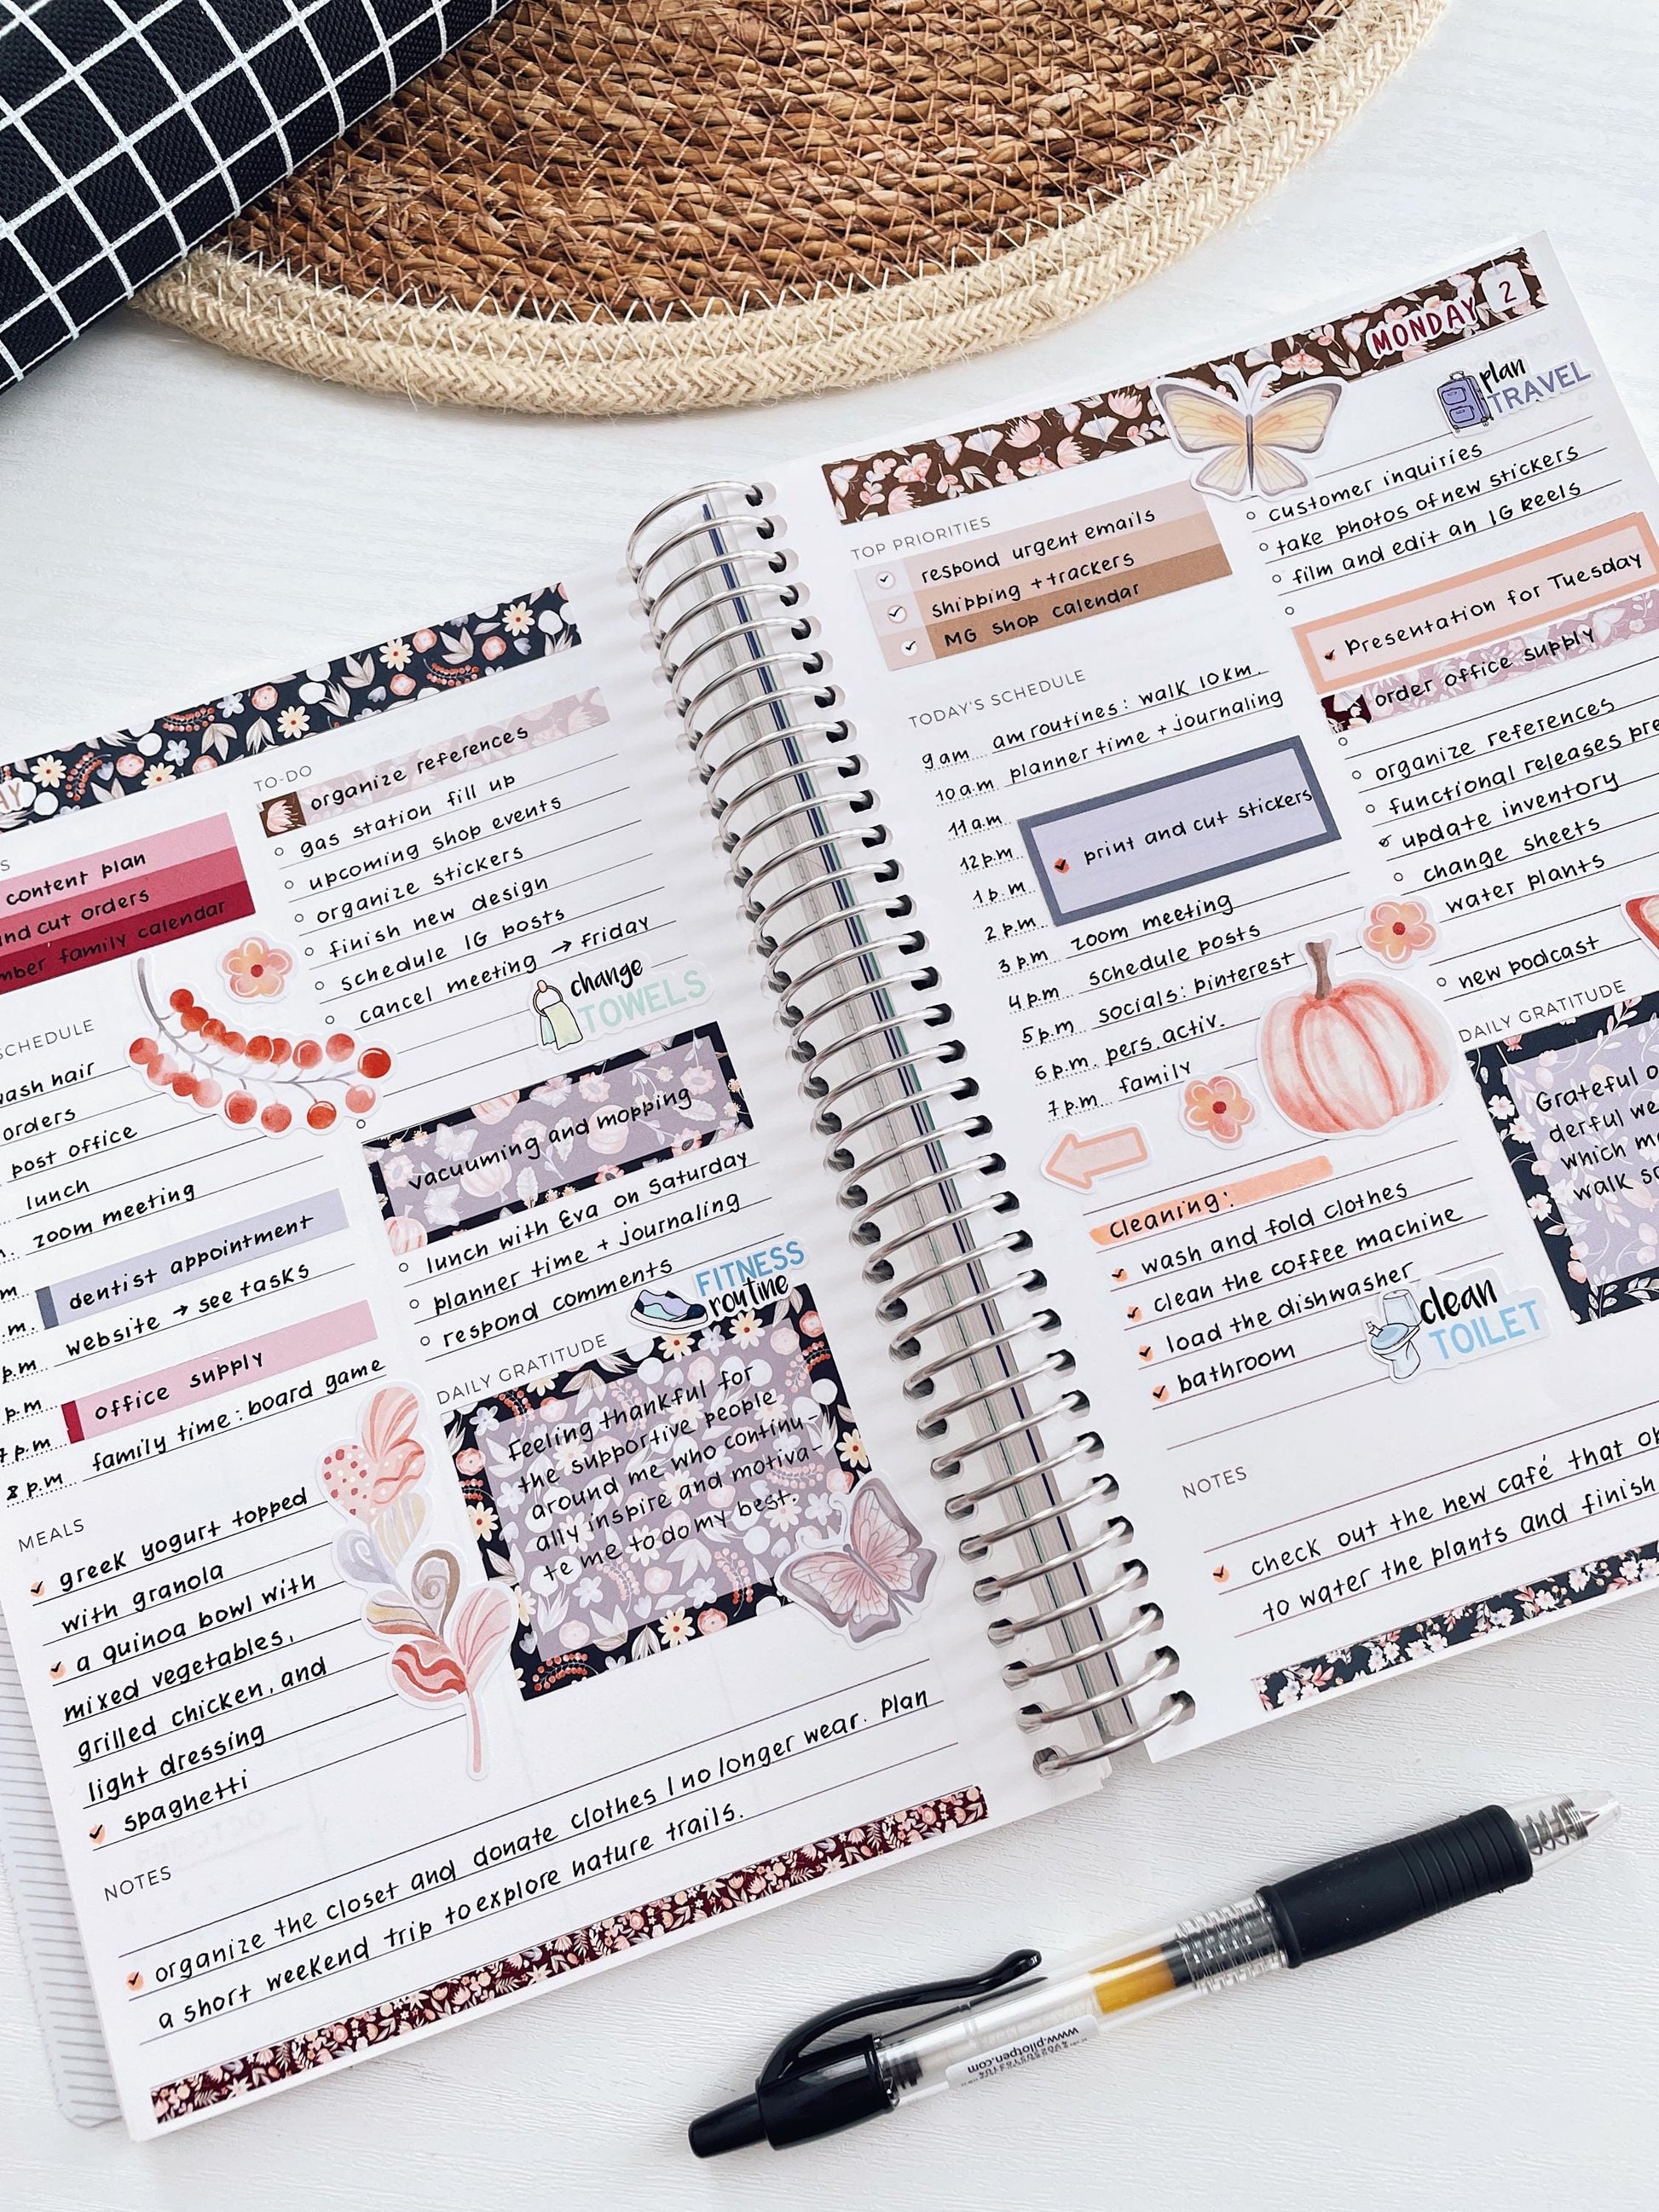 AY
content plan
and cut orders
family calendar
SCHEDULE
wash hair
orders
post office
lunch
zoom meeting
dentist appointment
website → see tasks
pm
office supply
p.m
family time: board game
8 p.m.
MEALS
greek yogurt topped
with granola
a quinoa bowl with
mixed vegetables,
grilled chicken, and
light dressing
spaghetti
TO-DO
organize references
gas station fill up
upcoming shop events
organize stickers
finish new design
schedule IG posts
cancel meeting → Friday
change
TOWELS
vacuuming and mopping
lunch with Eva on Saturday
planner time + journaling
respond comments
FITNESS
routine
DAILY GRATITUDE
Feeling thankful for
the supportive people
around me who continu-
ally inspire and motiva-
te me to do my best.
NOTES
organize the closet and donate clothes I no longer wear. Plan
a short weekend trip to explore nature trails.
MONDAY 2
TOP PRIORITIES
respond urgent emails
shipping + trackers
MG Shop calendar
TODAY'S SCHEDULE
9 am am routines: walk 10 km.
10 a.m planner time + journaling
11 a.m.
12 p.m
print and cut stickers
1 p.m
2 p.m. zoom meeting
3 p.m schedule posts
4 p.m socials: pinterest
5 p.m pers. activ.
6 p.m. family
7 p.m.
Cleaning:
wash and fold clothes
clean the coffee machine
load the dishwasher
bathroom
clean
TOILET
plan
TRAVEL
customer inquiries
take photos of new stickers
film and edit an IG Reels
Presentation for Tuesday
order office supply
organize references
functional releases
update inventory
change sheets
water plants
new podcast
DAILY GRATITUDE
Grateful
derful
which
walk
NOTES
check out the new café that
to water the plants and finish
www.pilotpen.com